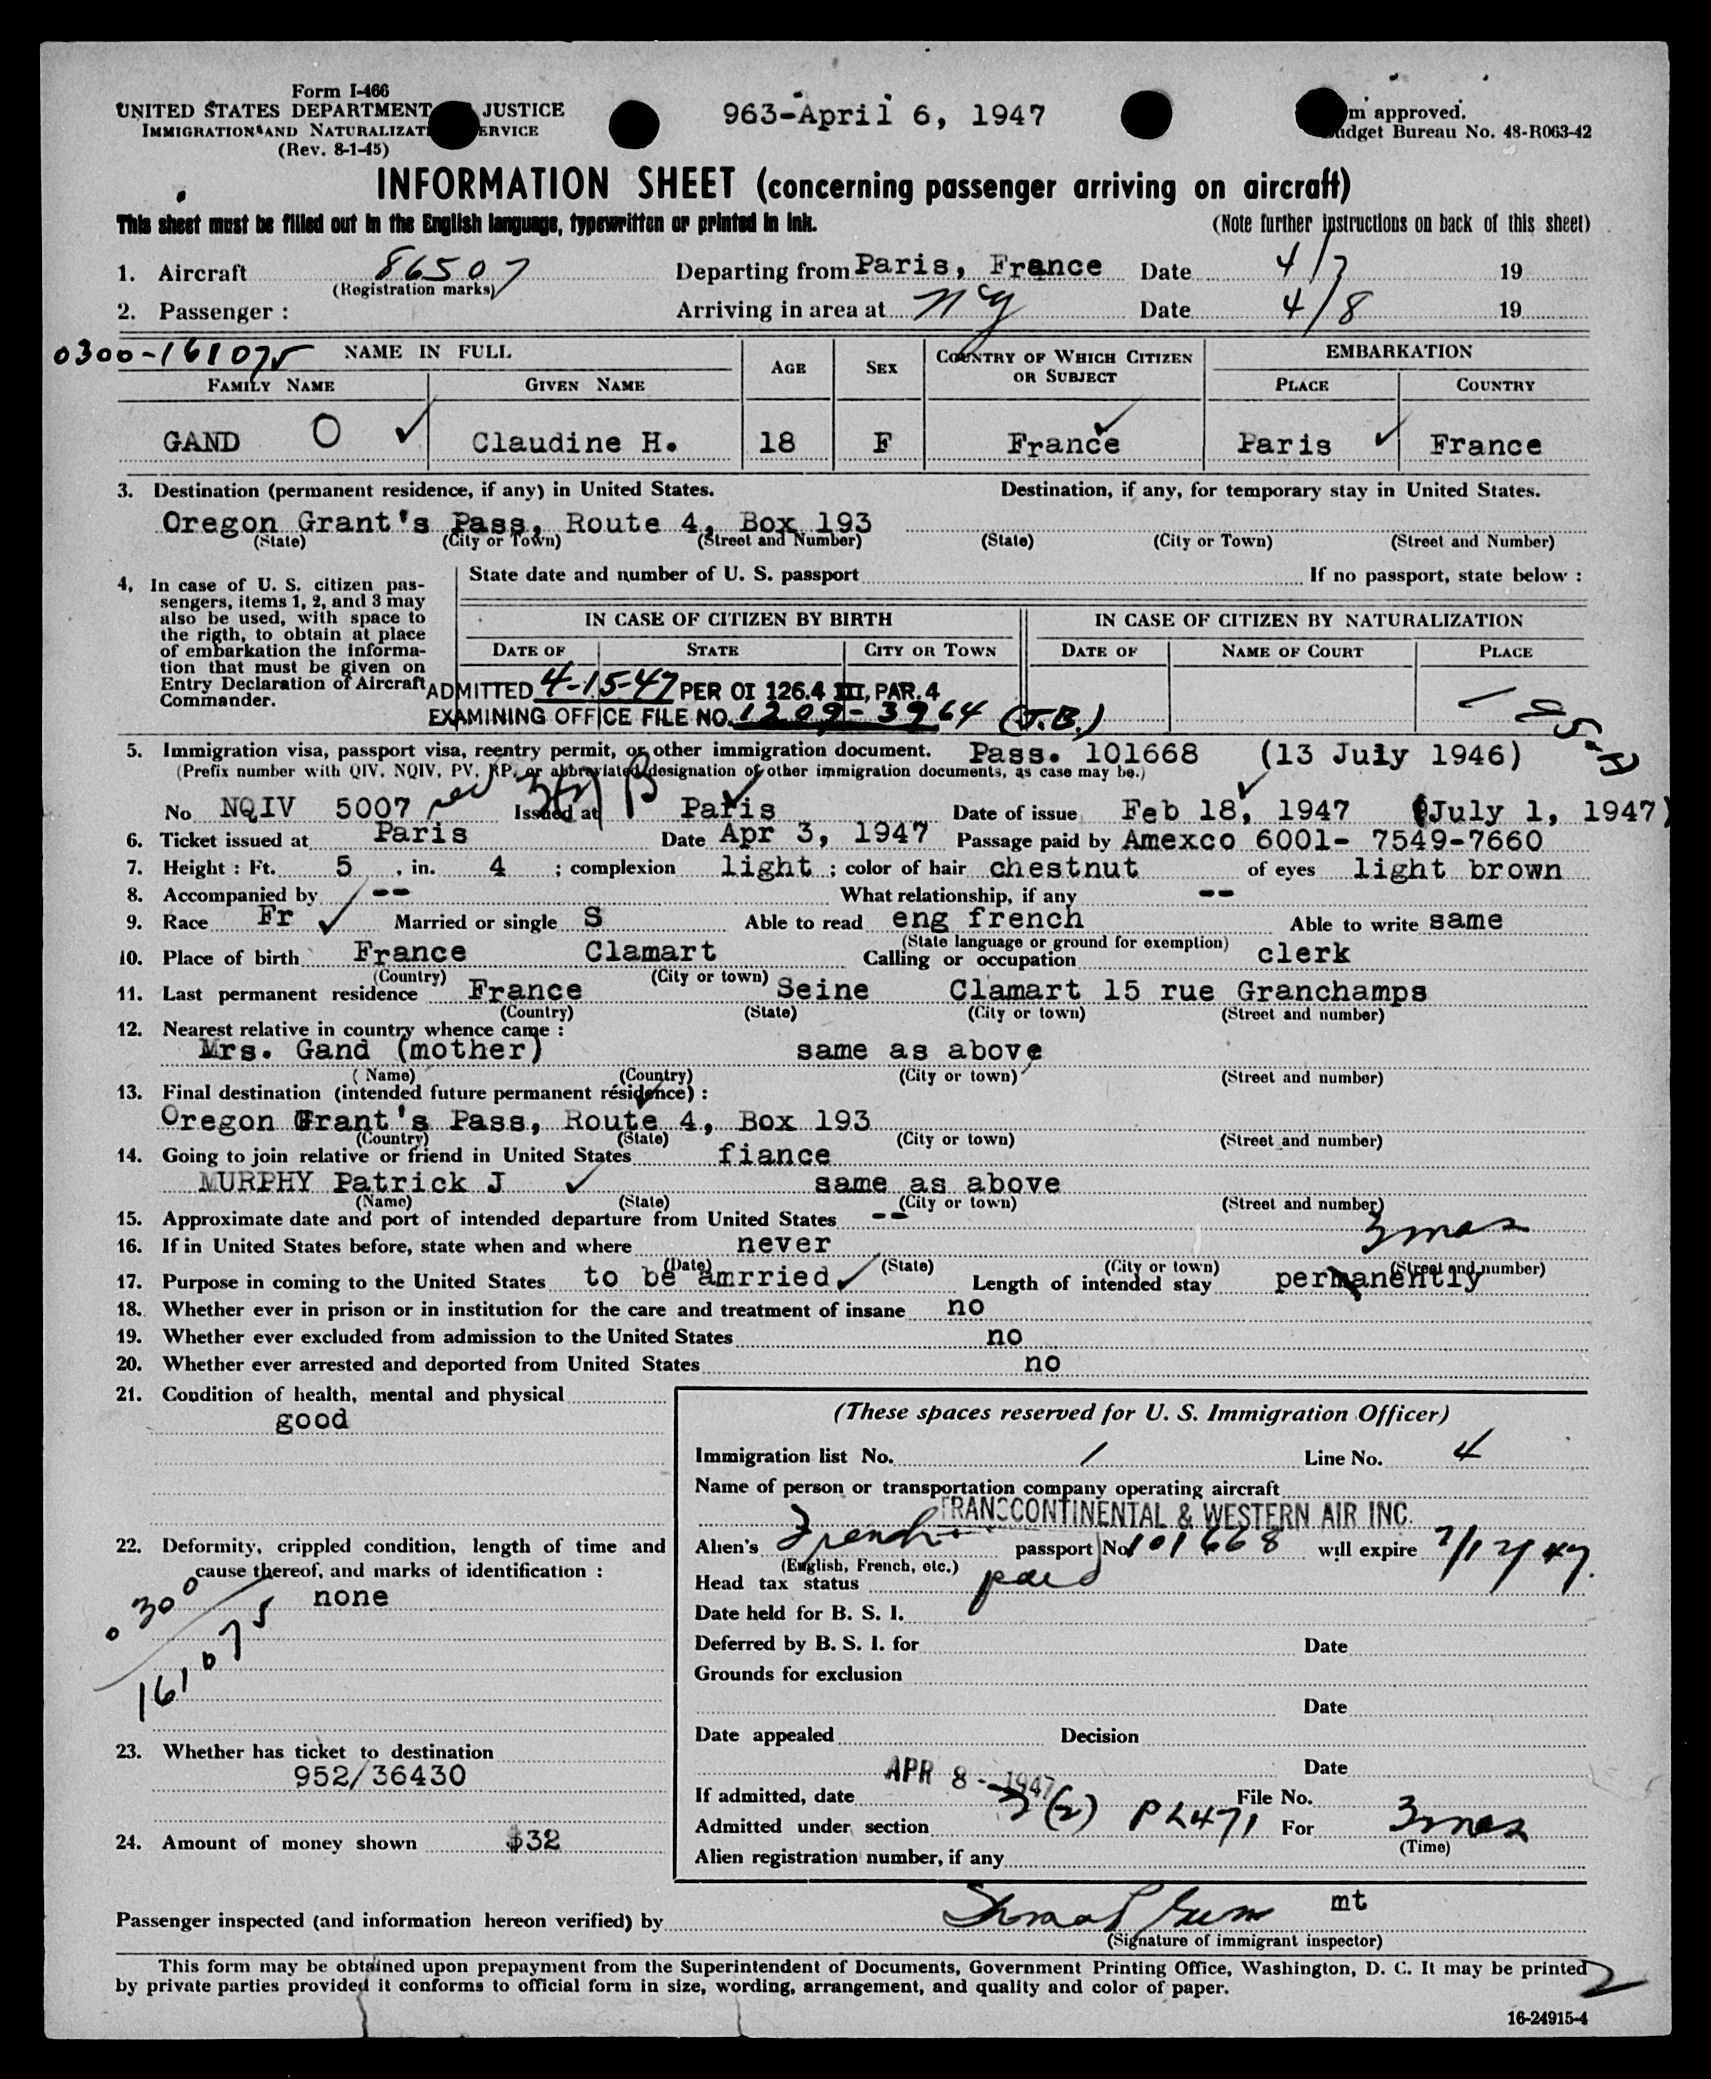 Form I-466
UNITED STATES DEPARTMENT JUSTICE
IMMIGRATION AND NATURALIZAT ERVICE
(Rev. 8-1-45)
963-April 6, 1947
m approved.
udget Bureau No. 48-R063-42
INFORMATION SHEET (concerning passenger arriving on aircraft)
This sheet must be filled out in the English language, typewritten or printed in ink.
(Note further instructions on back of this sheet)
1. Aircraft 86507 Departing from Paris, France Date 4/7 19
(Registration marks)
2. Passenger : Arriving in area at NY Date 4/8 19
0300-161075 NAME IN FULL AGE SEX COUNTRY OF WHICH CITIZEN OR SUBJECT EMBARKATION
FAMILY NAME GIVEN NAME PLACE COUNTRY
GAND O Claudine H. 18 F France Paris France
3. Destination (permanent residence, if any) in United States. Destination, if any, for temporary stay in United States.
Oregon Grant's Pass, Route 4, Box 193
(State) (City or Town) (Street and Number) (State) (City or Town) (Street and Number)
4. In case of U. S. citizen pas-
sengers, items 1, 2, and 3 may
also be used, with space to
the rigth, to obtain at place
of embarkation the informa-
tion that must be given on
Entry Declaration of Aircraft
Commander.
State date and number of U. S. passport If no passport, state below :
IN CASE OF CITIZEN BY BIRTH IN CASE OF CITIZEN BY NATURALIZATION
DATE OF STATE CITY OR TOWN DATE OF NAME OF COURT PLACE
ADMITTED 4-15-47 PER OI 126.4 III, PAR. 4
EXAMINING OFFICE FILE NO. 1209-3964 (J.B.)
5. Immigration visa, passport visa, reentry permit, or other immigration document. Pass. 101668 (13 July 1946)
(Prefix number with QIV, NQIV, PV, RP, or abbreviated designation of other immigration documents, as case may be.)
No NQIV 5007 Issued at Paris Date of issue Feb 18, 1947 (July 1, 1947)
6. Ticket issued at Paris Date Apr 3, 1947 Passage paid by Amexco 6001- 7549-7660
7. Height : Ft. 5 , in. 4 ; complexion light ; color of hair chestnut of eyes light brown
8. Accompanied by -- What relationship, if any --
9. Race Fr Married or single S Able to read eng french Able to write same
(State language or ground for exemption)
10. Place of birth France Clamart Calling or occupation clerk
(Country) (City or town)
11. Last permanent residence France Seine Clamart 15 rue Granchamps
(Country) (State) (City or town) (Street and number)
12. Nearest relative in country whence came :
Mrs. Gand (mother) same as above
(Name) (Country) (City or town) (Street and number)
13. Final destination (intended future permanent résidence) :
Oregon Grant's Pass, Route 4, Box 193
(Country) (State) (City or town) (Street and number)
14. Going to join relative or friend in United States fiance
MURPHY Patrick J same as above
(Name) (State) (City or town) (Street and number)
15. Approximate date and port of intended departure from United States -- 3 mos
16. If in United States before, state when and where never
(Date) (State) (City or town) (Street and number)
17. Purpose in coming to the United States to be amrried Length of intended stay permanently
18. Whether ever in prison or in institution for the care and treatment of insane no
19. Whether ever excluded from admission to the United States no
20. Whether ever arrested and deported from United States no
21. Condition of health, mental and physical
good
22. Deformity, crippled condition, length of time and
cause thereof, and marks of identification :
none
0300
161075
23. Whether has ticket to destination
952/36430
24. Amount of money shown $32
(These spaces reserved for U. S. Immigration Officer)
Immigration list No. 1 Line No. 4
Name of person or transportation company operating aircraft
TRANSCONTINENTAL & WESTERN AIR INC.
Alien's French passport No. 101668 will expire 7/12/47.
(English, French, etc.)
Head tax status paid
Date held for B. S. I.
Deferred by B. S. I. for Date
Grounds for exclusion
Date
Date appealed Decision
Date
If admitted, date APR 8 - 1947 File No.
Admitted under section 3(2) PL471 For 3 mos
(Time)
Alien registration number, if any
Passenger inspected (and information hereon verified) by mt
(Signature of immigrant inspector)
This form may be obtained upon prepayment from the Superintendent of Documents, Government Printing Office, Washington, D. C. It may be printed
by private parties provided it conforms to official form in size, wording, arrangement, and quality and color of paper.
16-24915-4